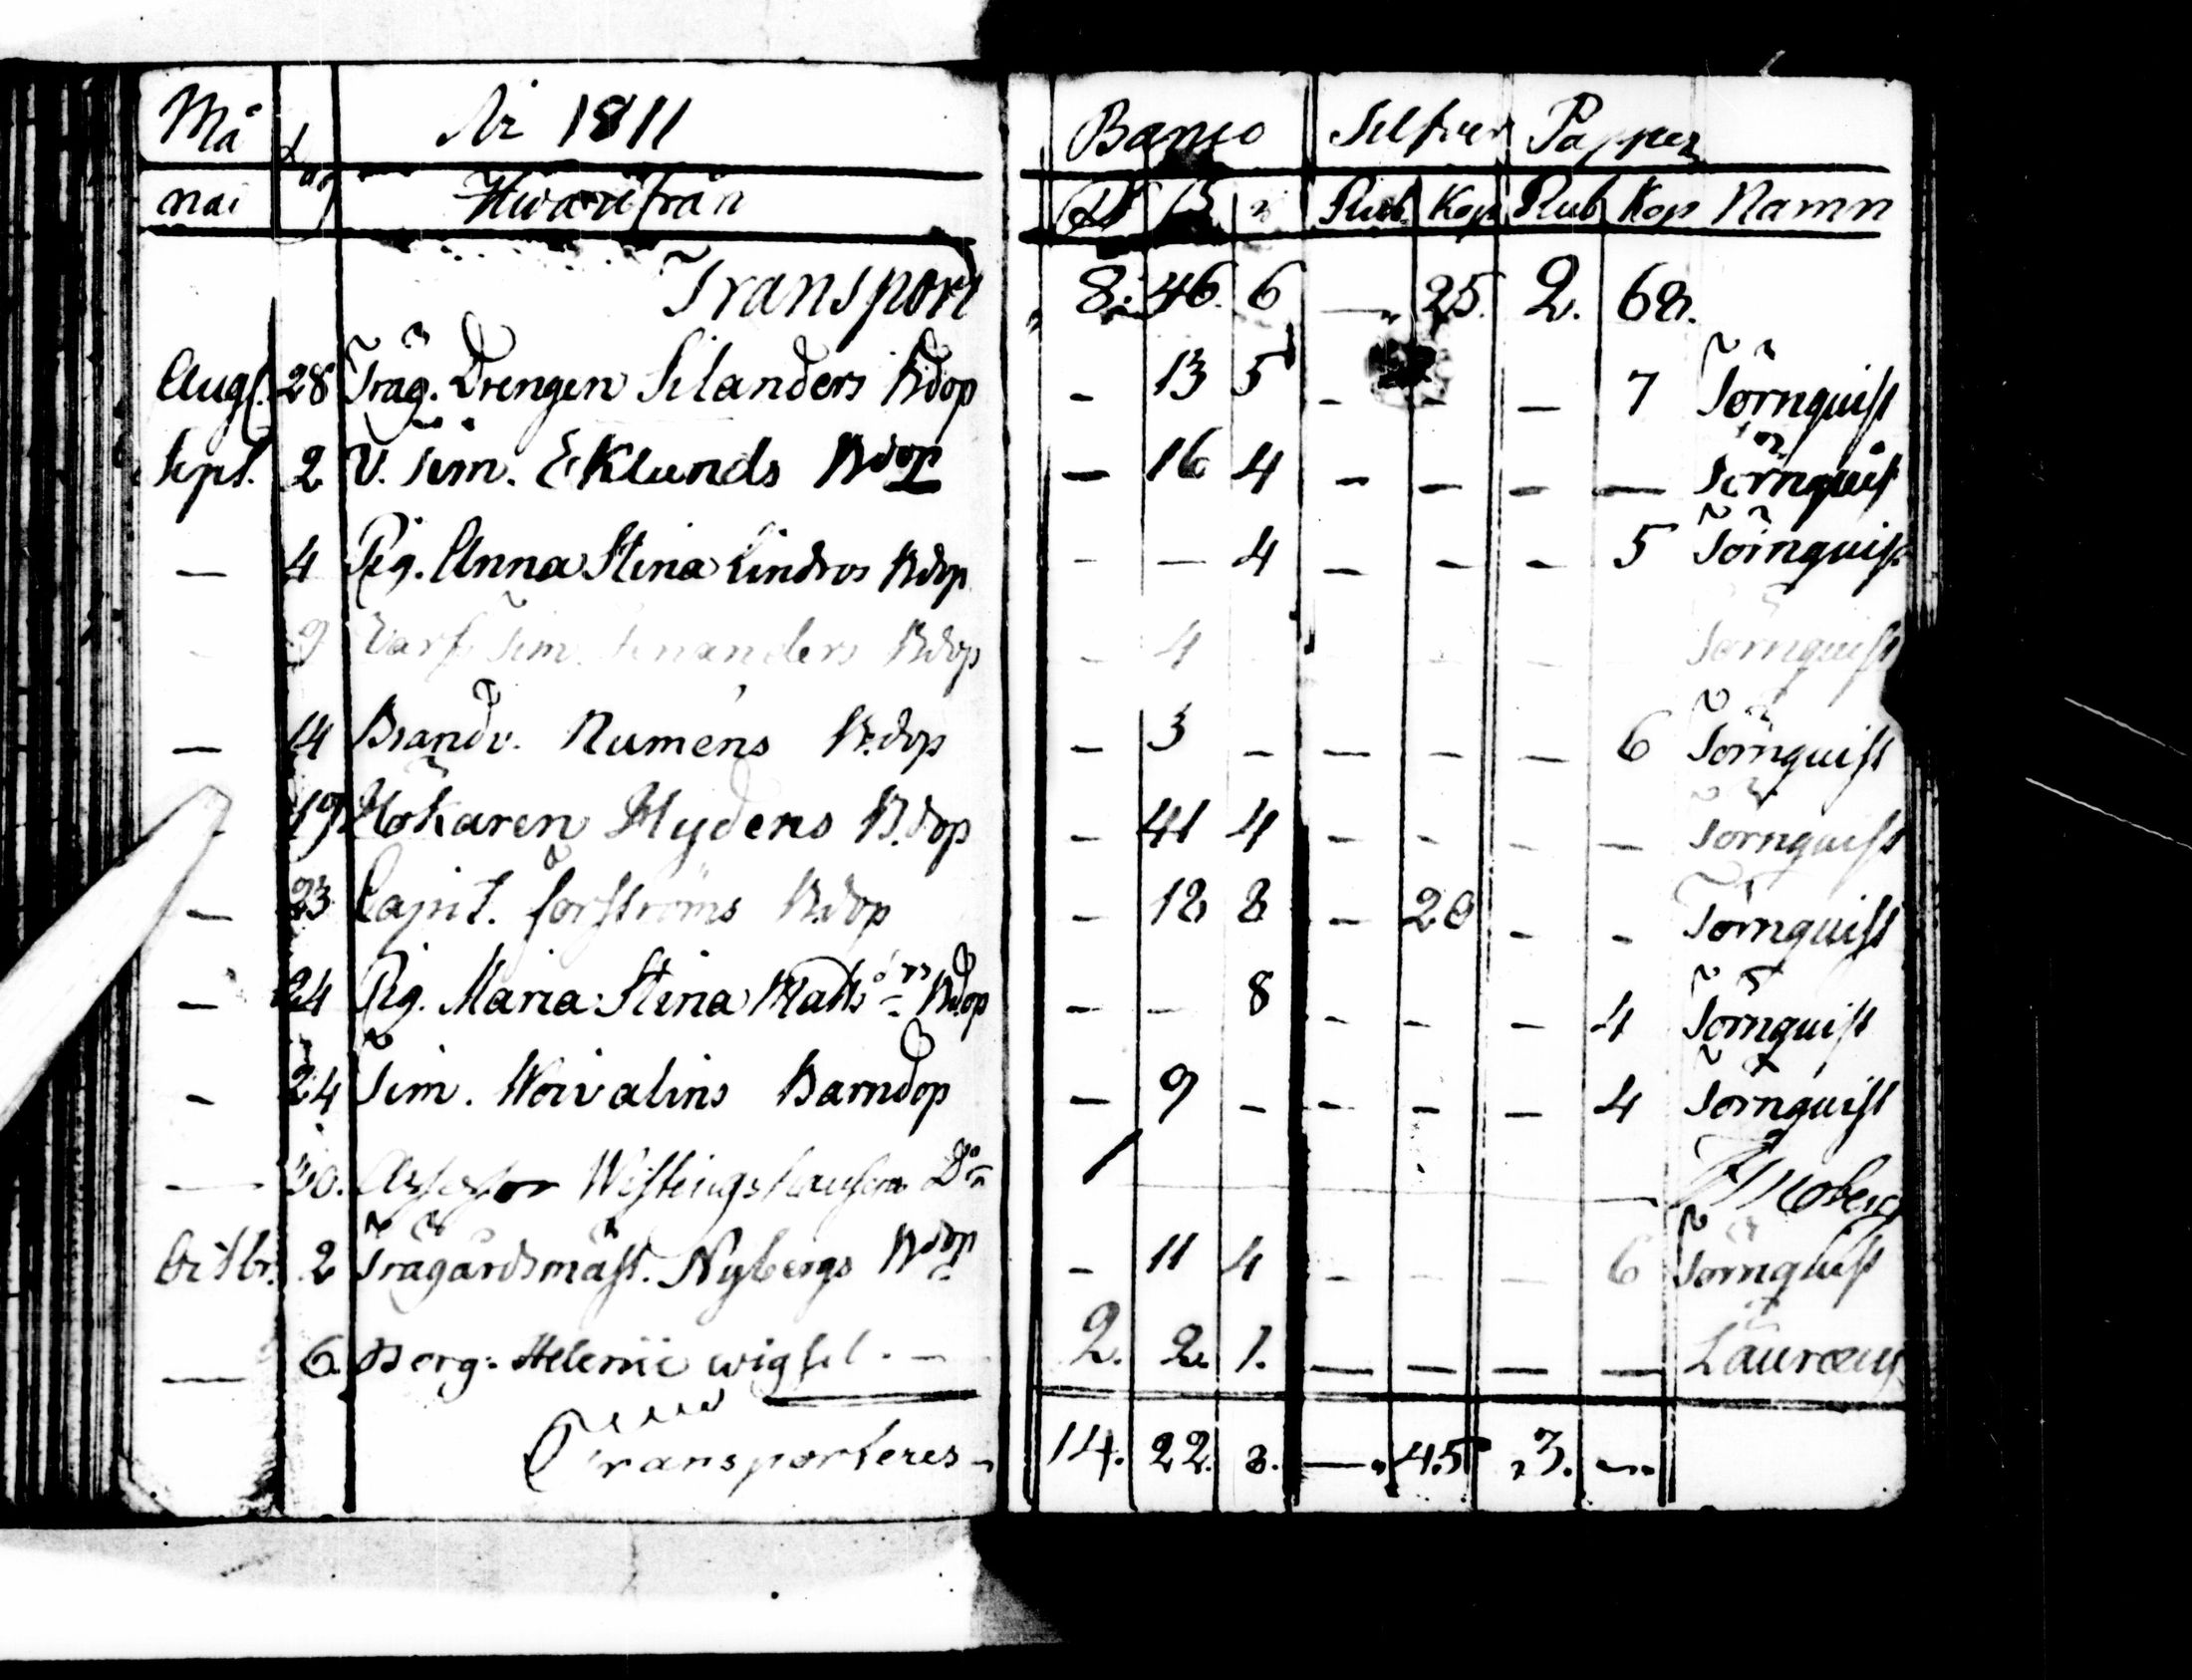 Må d År 1811 Banco Silfver Papper
nat ag Hwarifrån Rd ß r Rub. Kop Rub Kop Namn
Transport 8: 46. 6 —. 25. 2. 68.
Augs. 28 Träg. Drengen Silanders Bdop - 13 5 - - — 7 Törnquist
Sept. 2 V. Tim. Eklunds Bdop — 16 4 - - - — Törnquist
— 4 Pig. Anna Stina Lindros Bdop - — 4 - - - 5 Törnquist
- 9 Varf Tim. Bdop - 4 - - - Törnquist
— 14 Brandv. Numéns B.dop - 3 - - - — 6 Törnquist
- 19 Hökaren Hydens B.dop - 41 4 - - - — Törnquist
— 23 Capit. Forströms B.dop - 18 8 - 20 - - Törnquist
— 24 Pig. Maria Stina Matts dr Bdop - - 8 - - — 4 Törnquist
- 24 Tim. Woivalins Barndop — 9 - - - — 4 Törnquist
— 30. Assessor D:o 1 — Moberg
Octbr. 2 Trägårdsmäst. Nybergs Bdop - 11 4 - - — 6 Törnquist
— 6. Borg: Helenii wigsel. — 2. 2. 1. — — — — Lauræus
Transporteres - 14. 22. 8. —. 45 3. —.